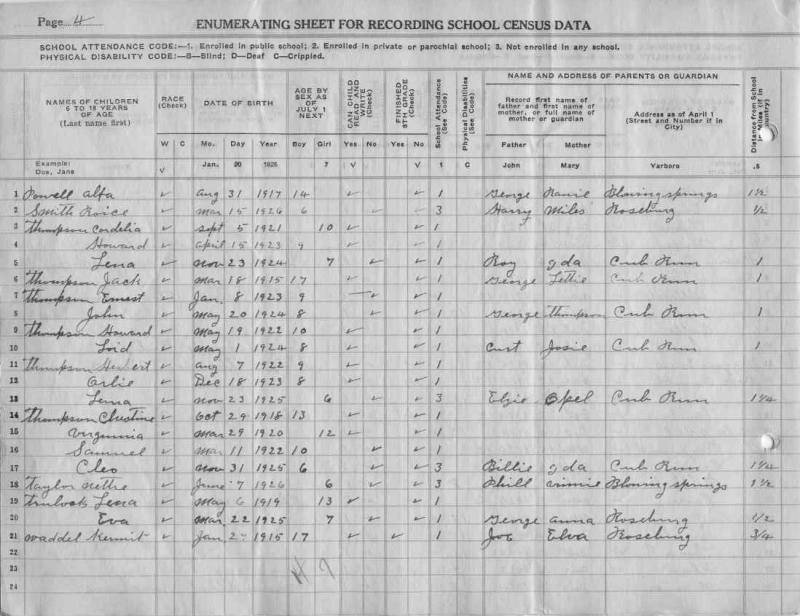 Page 4
ENUMERATING SHEET FOR RECORDING SCHOOL CENSUS DATA
SCHOOL ATTENDANCE CODE:—1. Enrolled in public school; 2. Enrolled in private or parochial school; 3. Not enrolled in any school.
PHYSICAL DISABILITY CODE:—B—Blind; D—Deaf C—Crippled.
NAMES OF CHILDREN 6 TO 18 YEARS OF AGE (Last name first)
RACE (Check)
W C
DATE OF BIRTH
Mo. Day Year
AGE BY SEX AS OF JULY 1 NEXT
Boy Girl
CAN CHILD READ AND WRITE (Check)
Yes No
FINISHED 8TH GRADE (Check)
Yes No
School Attendance (See Code)
Physical Disabilities (See Code)
NAME AND ADDRESS OF PARENTS OR GUARDIAN
Record first name of father and first name of mother, or full name of mother or guardian
Father Mother
Address as of April 1 (Street and Number if in City)
Distance from School in Miles (if in country)
Example: Doe, Jane V Jan. 20 1926 7 V V 1 C John Mary Yarboro .5
1 Powell Alfa ✓ Aug 31 1917 14 ✓ ✓ 1 George Blowing springs 1½
2 Smith Roice ✓ Mar 15 1926 6 ✓ ✓ 3 Harry Miles Roseburg ½
3 Thompson Cordelia ✓ Sept 5 1921 10 ✓ ✓ 1
4 Howard ✓ April 15 1923 9 ✓ ✓ 1
5 Lena ✓ Nov 23 1924 7 ✓ ✓ 1 Roy Ida Cub Run 1
6 Thompson Jack ✓ Mar 18 1915 17 ✓ ✓ 1 George Lettie Cub Run 1
7 Thompson Ernest ✓ Jan. 8 1923 9 ✓ ✓ 1
8 John ✓ May 20 1924 8 ✓ ✓ 1 George Thompson Cub Run 1
9 Thompson Howard ✓ May 19 1922 10 ✓ ✓ 1
10 Loid ✓ May 1 1924 8 ✓ ✓ 1 Curt Josie Cub Run 1
11 Thompson Herbert ✓ Aug 7 1922 9 ✓ ✓ 1
12 Orlie ✓ Dec 18 1923 8 ✓ ✓ 1
13 Lema ✓ Nov 23 1925 6 ✓ ✓ 3 Elzie Opel Cub Run 1¼
14 Thompson Chestine ✓ Oct 29 1918 13 ✓ ✓ 1
15 Virginnia ✓ Mar 29 1920 12 ✓ ✓ 1
16 Samuel ✓ Mar 11 1922 10 ✓ ✓ 1
17 Cleo ✓ Nov 31 1925 6 ✓ ✓ 3 Billie Ida Cub Run 1¼
18 Taylor Nettie ✓ June 7 1926 6 ✓ ✓ 3 Phill Blowing springs 1½
19 Lena ✓ May 6 1919 13 ✓ ✓ 1
20 Eva ✓ Mar 22 1925 7 ✓ ✓ 1 George Anna Roseburg ½
21 Waddel Kermit ✓ Jan 1915 17 ✓ ✓ 1 Joe Elva Roseburg ¾
22
23
24